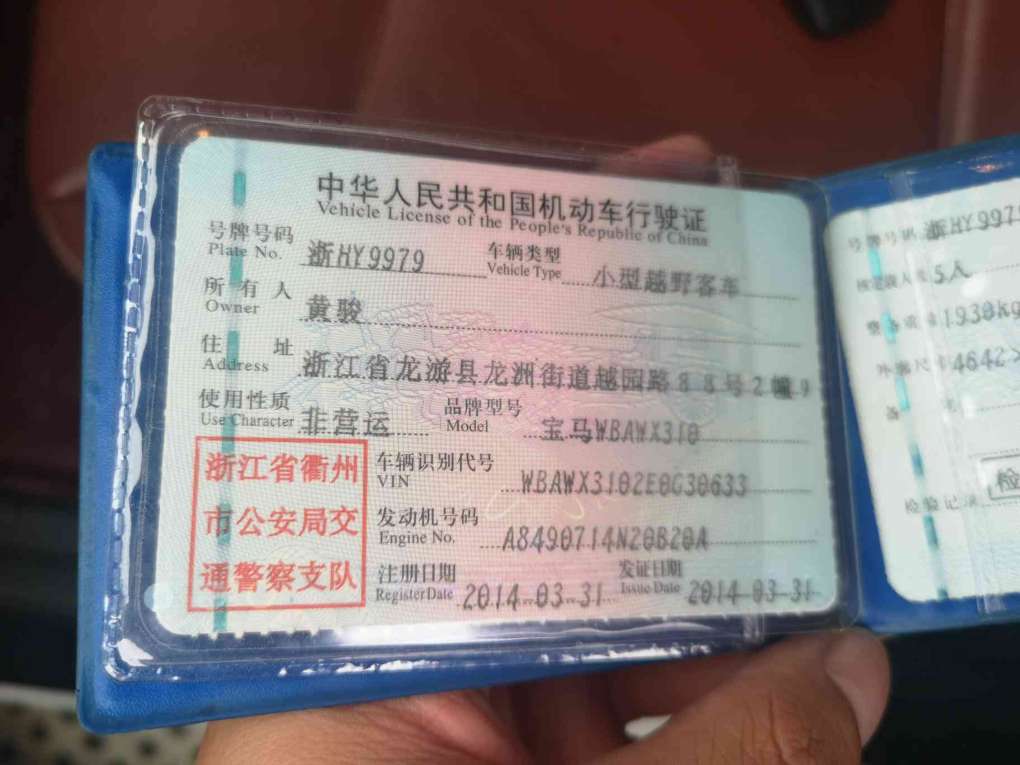 中华人民共和国机动车行驶证
Vehicle License of the People's Republic of China
号牌号码 浙HY9979 车辆类型 小型越野客车
Plate No. Vehicle Type
所有人 黄骏
Owner
住址 浙江省龙游县龙洲街道越园路88号2幢9
Address
使用性质 非营运 品牌型号 宝马WBAWX310
Use Character Model
浙江省衢州
市公安局交
通警察支队
车辆识别代号 WBAWX3102E0G30633
VIN
发动机号码 A8490714N20B20A
Engine No.
注册日期 2014-03-31 发证日期 2014-03-31
Register Date Issue Date
号牌号码 浙HY997
5人
整备质量 1930kg
外廓尺寸 4642×
备
检验记录 检